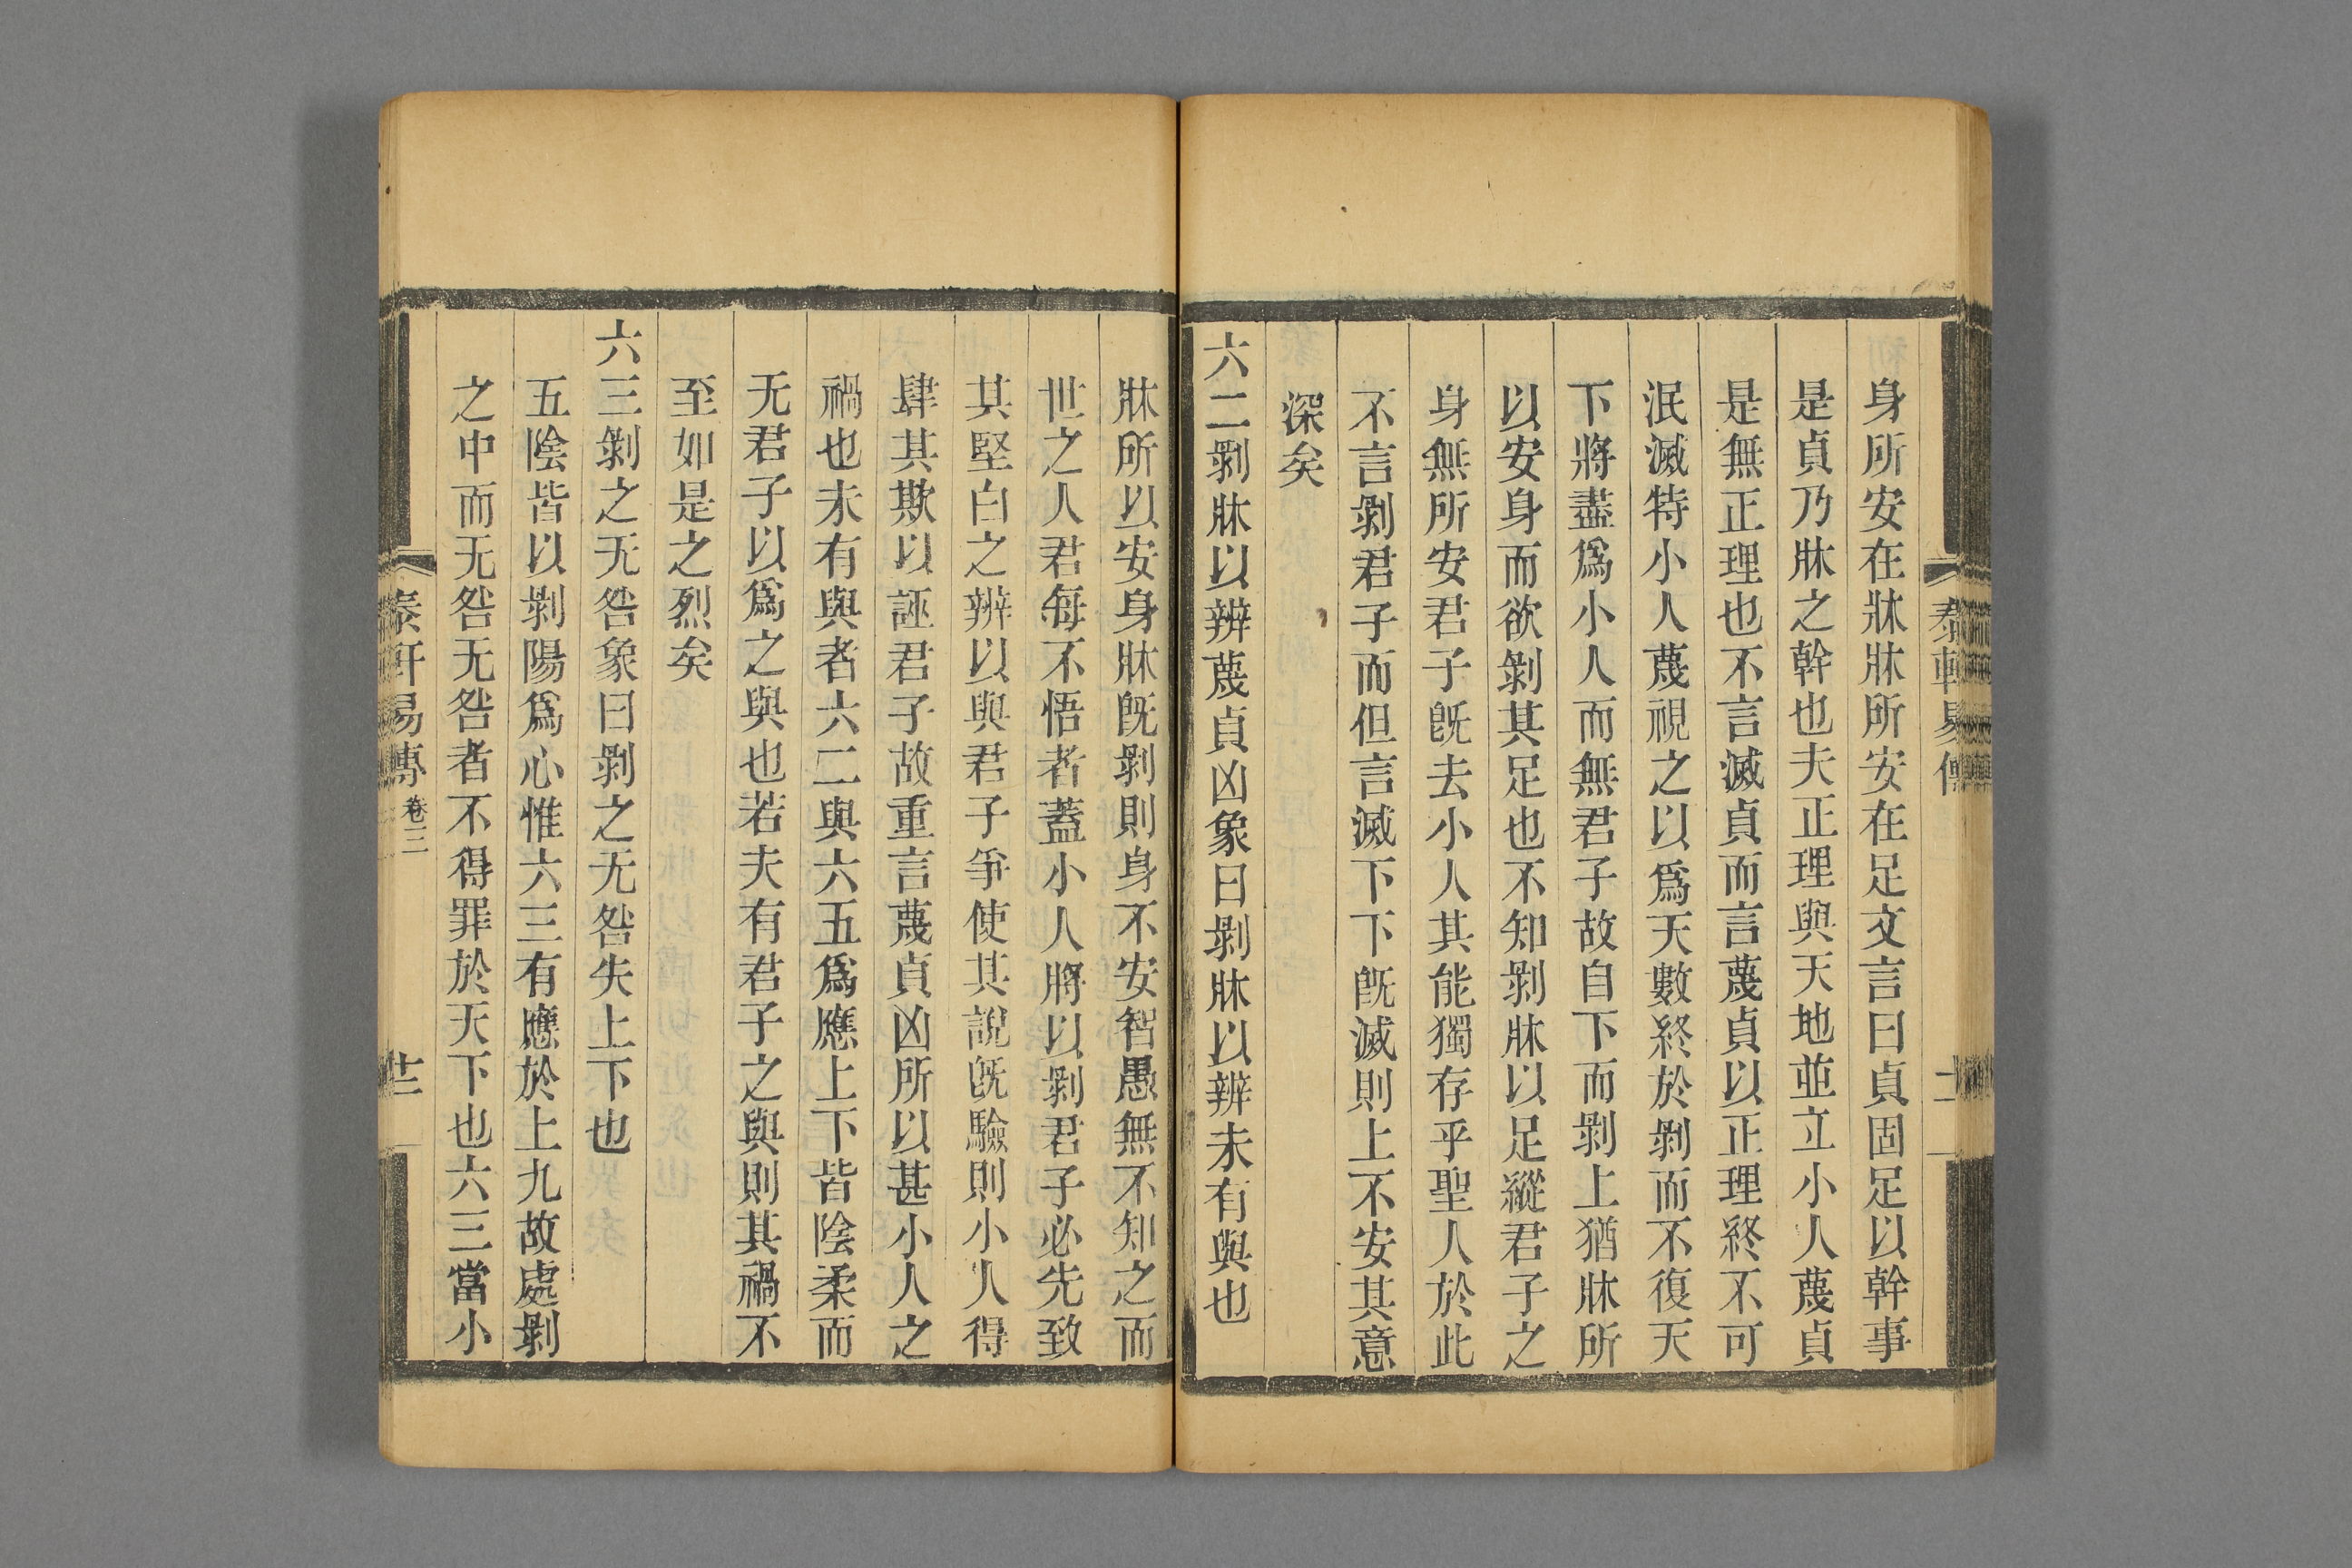 身所安在牀牀所安在足文言曰貞固足以幹事
是貞乃牀之幹也夫正理與天地並立小人蔑貞
是無正理也不言滅貞而言蔑貞以正理終不可
泯滅特小人蔑視之以爲天數終於剝而不復天
下將盡爲小人而無君子故自下而剝上猶牀所
以安身而欲剝其足也不知剝牀以足縱君子之
身無所安君子旣去小人其能獨存乎聖人於此
不言剝君子而但言滅下下旣滅則上不安其意
深矣
六二剝牀以辨蔑貞凶象曰剝牀以辨未有與也
牀所以安身牀旣剝則身不安智愚無不知之而
世之人君每不悟者蓋小人將以剝君子必先致
其堅白之辨以與君子爭使其說旣驗則小人得
肆其欺以誣君子故重言蔑貞凶所以甚小人之
禍也未有與者六二與六五爲應上下皆陰柔而
无君子以爲之與也若夫有君子之與則其禍不
至如是之烈矣
六三剝之无咎象曰剝之无咎失上下也
五陰皆以剝陽爲心惟六三有應於上九故處剝
之中而无咎无咎者不得罪於天下也六三當小
泰軒易傳
卷三